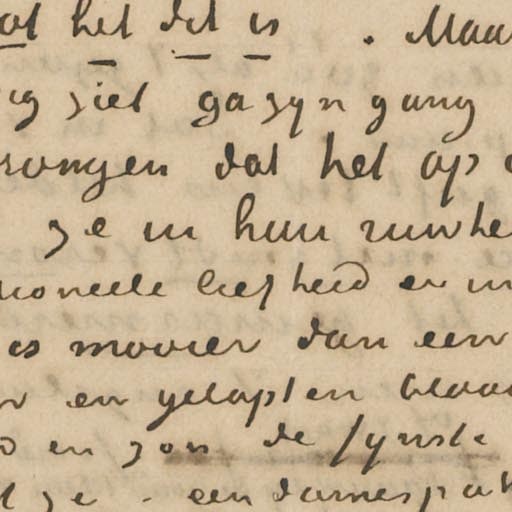 dat het dit is. Maar
ig ziet ga zyn gang
rongen dat het op
ze in hun ruwhe
tioneele liefheid en in
is mooier dan een
en gelapten blaau
en zon de fynste
ze - een damespak